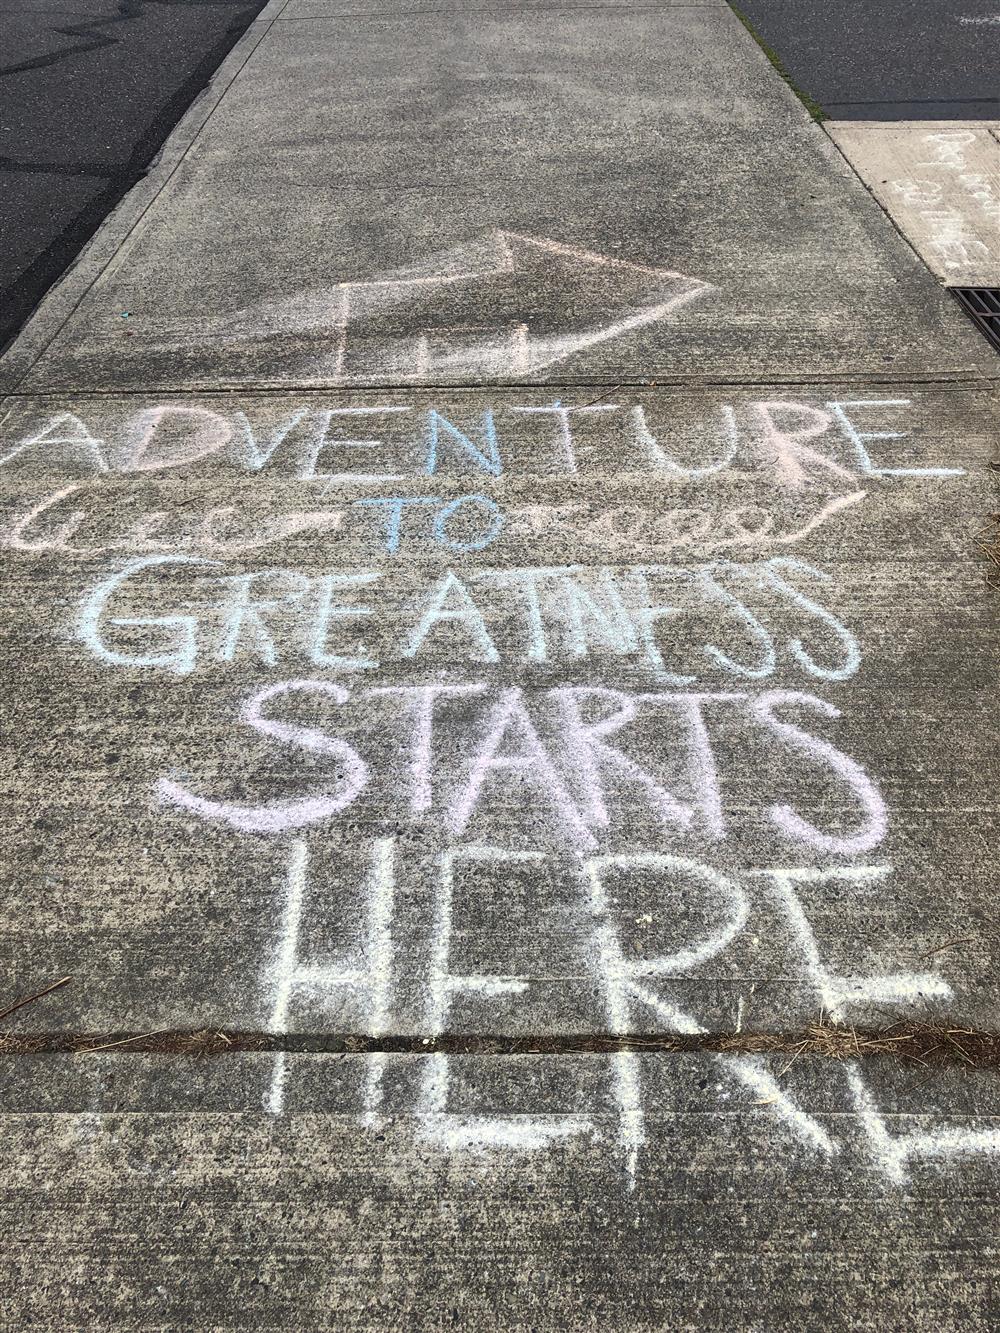 ADVENTURE
TO
GREATNESS
STARTS
HERE